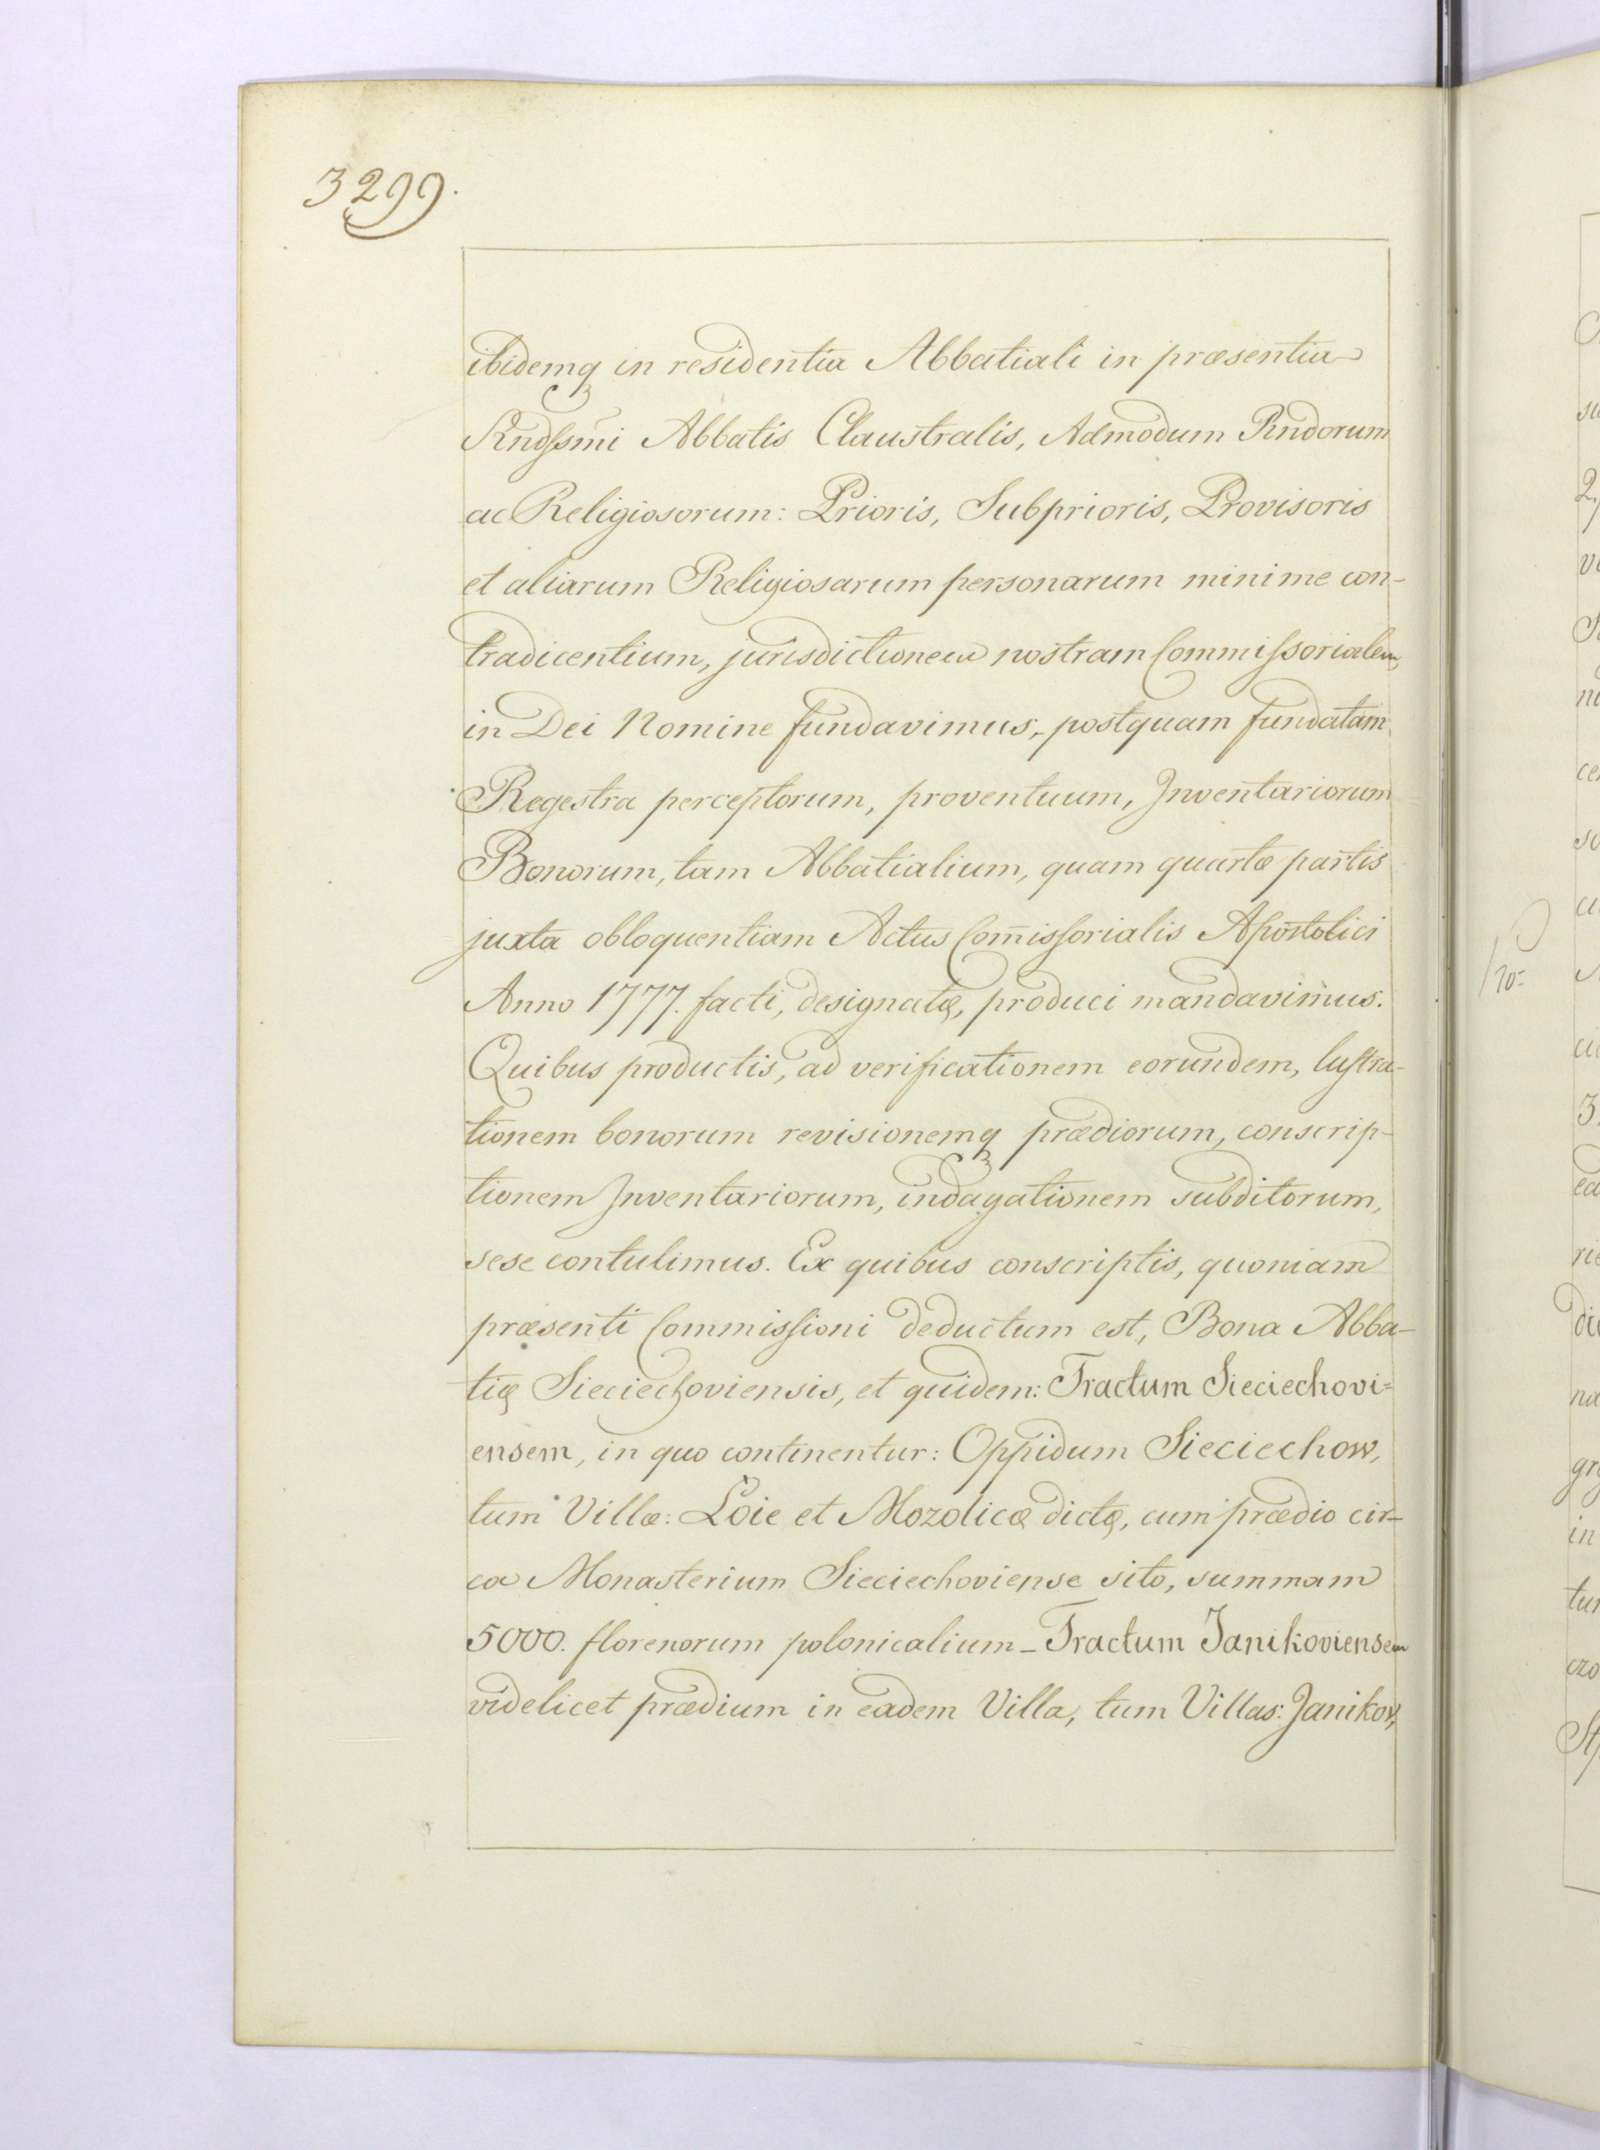 3299.
ibidemq in residentia Abbatiali in præsentia
Rndssmi Abbatis Claustralis, Admodum Rndorum
ac Religiosorum: Prioris, Subprioris, Provisoris
et aliarum Religiosarum personarum minime con-
tradicentium, jurisdictionem nostram Commissorialem,
in Dei Nomine fundavimus, postquam fundatam
Regestra perceptorum, proventuum, Inventariorum
Bonorum, tam Abbatialium, quam quartæ partis
juxta obloquentiam Actus Com̄issorialis Apostolici
Anno 1777. facti, designatę, produci mandavimus.
Quibus productis, ad verificationem eorundem, lustra-
tionem bonorum revisionemq prædiorum, conscrip-
tionem Inventariorum, indagationem subditorum,
sese contulimus. Ex quibus conscriptis, quoniam
præsenti Commissioni deductum est, Bona Abba-
tię Sieciechoviensis, et quidem: Tractum Sieciechovi=
ensem, in quo continentur: Oppidum Sieciechow,
tum Villæ: Loie et Mozolicæ dictę, cum prædio cir-
ca Monasterium Sieciechoviense sito, summam
5000. florenorum polonicalium – Tractum Janikoviensem
videlicet prædium in eadem Villa, tum Villas: Janikow,